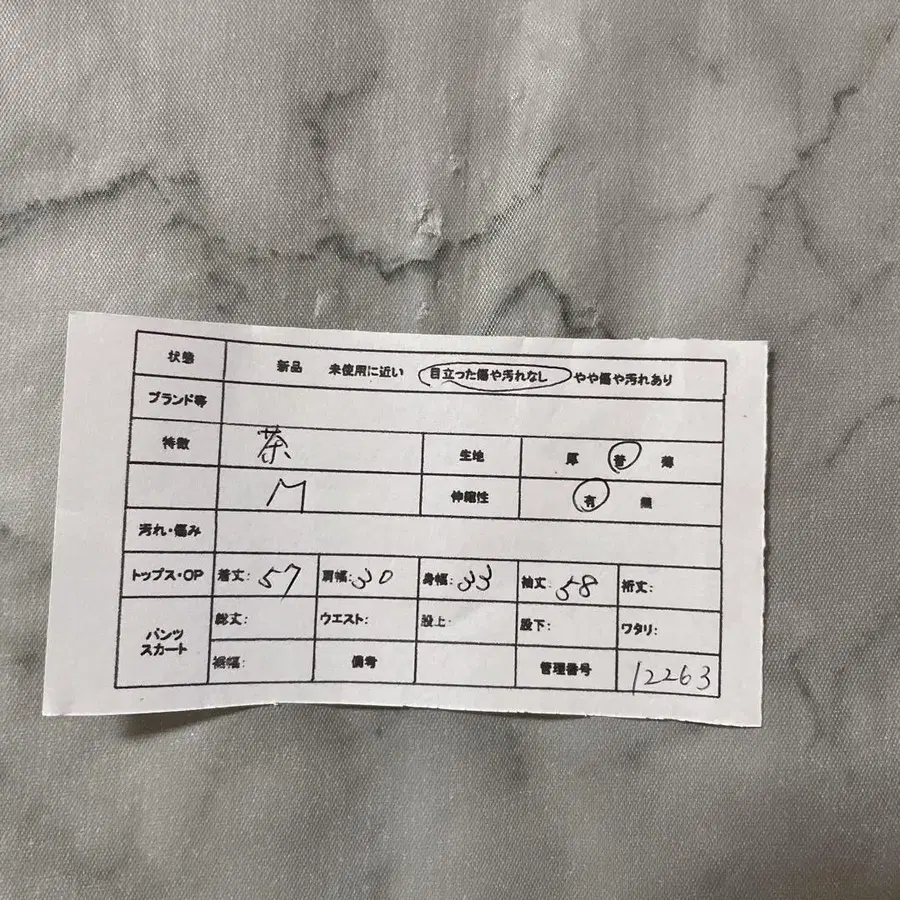 状態 新品 未使用に近い 目立った傷や汚れなし やや傷や汚れあり
ブランド等
特徴 茶 生地 厚 普 薄
M 伸縮性 有 無
汚れ・傷み
トップス・OP 着丈: 57 肩幅: 30 身幅: 33 袖丈: 58 裄丈:
パンツ スカート 総丈: ウエスト: 股上: 股下: ワタリ:
裾幅: 備考 管理番号 12263